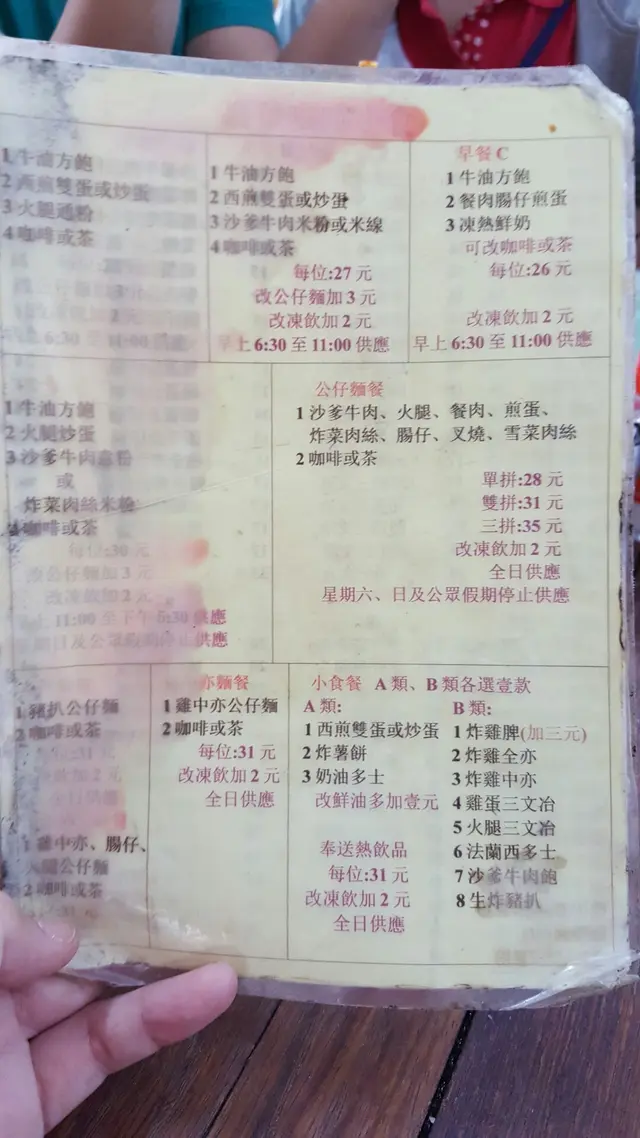 1 牛油方飽
2 西煎雙蛋或炒蛋
3 火腿通粉
4 咖啡或茶
加 2 元
6:30 至 11:00 供應
1 牛油方飽
2 西煎雙蛋或炒蛋
3 沙爹牛肉米粉或米線
4 咖啡或茶
每位:27 元
改公仔麵加 3 元
改凍飲加 2 元
早上 6:30 至 11:00 供應
早餐 C
1 牛油方飽
2 餐肉腸仔煎蛋
3 凍熱鮮奶
可改咖啡或茶
每位:26 元
改凍飲加 2 元
早上 6:30 至 11:00 供應
1 牛油方飽
2 火腿炒蛋
3 沙爹牛肉意粉
或
炸菜肉絲米粉
4 咖啡或茶
每位:30 元
改公仔麵加 3 元
改凍飲加 2 元
11:00 至下午 5:30 供應
期日及公眾假期停止供應
公仔麵餐
1 沙爹牛肉、火腿、餐肉、煎蛋、
炸菜肉絲、腸仔、叉燒、雪菜肉絲
2 咖啡或茶
單拼:28 元
雙拼:31 元
三拼:35 元
改凍飲加 2 元
全日供應
星期六、日及公眾假期停止供應
1 豬扒公仔麵
2 咖啡或茶
:31 元
飲加 2 元
1 雞中亦、腸仔、
火腿公仔麵
2 咖啡或茶
亦麵餐
1 雞中亦公仔麵
2 咖啡或茶
每位:31 元
改凍飲加 2 元
全日供應
小食餐 A 類、B 類各選壹款
A 類:
1 西煎雙蛋或炒蛋
2 炸薯餅
3 奶油多士
改鮮油多加壹元
奉送熱飲品
每位:31 元
改凍飲加 2 元
全日供應
B 類:
1 炸雞脾(加三元)
2 炸雞全亦
3 炸雞中亦
4 雞蛋三文治
5 火腿三文治
6 法蘭西多士
7 沙爹牛肉飽
8 生炸豬扒